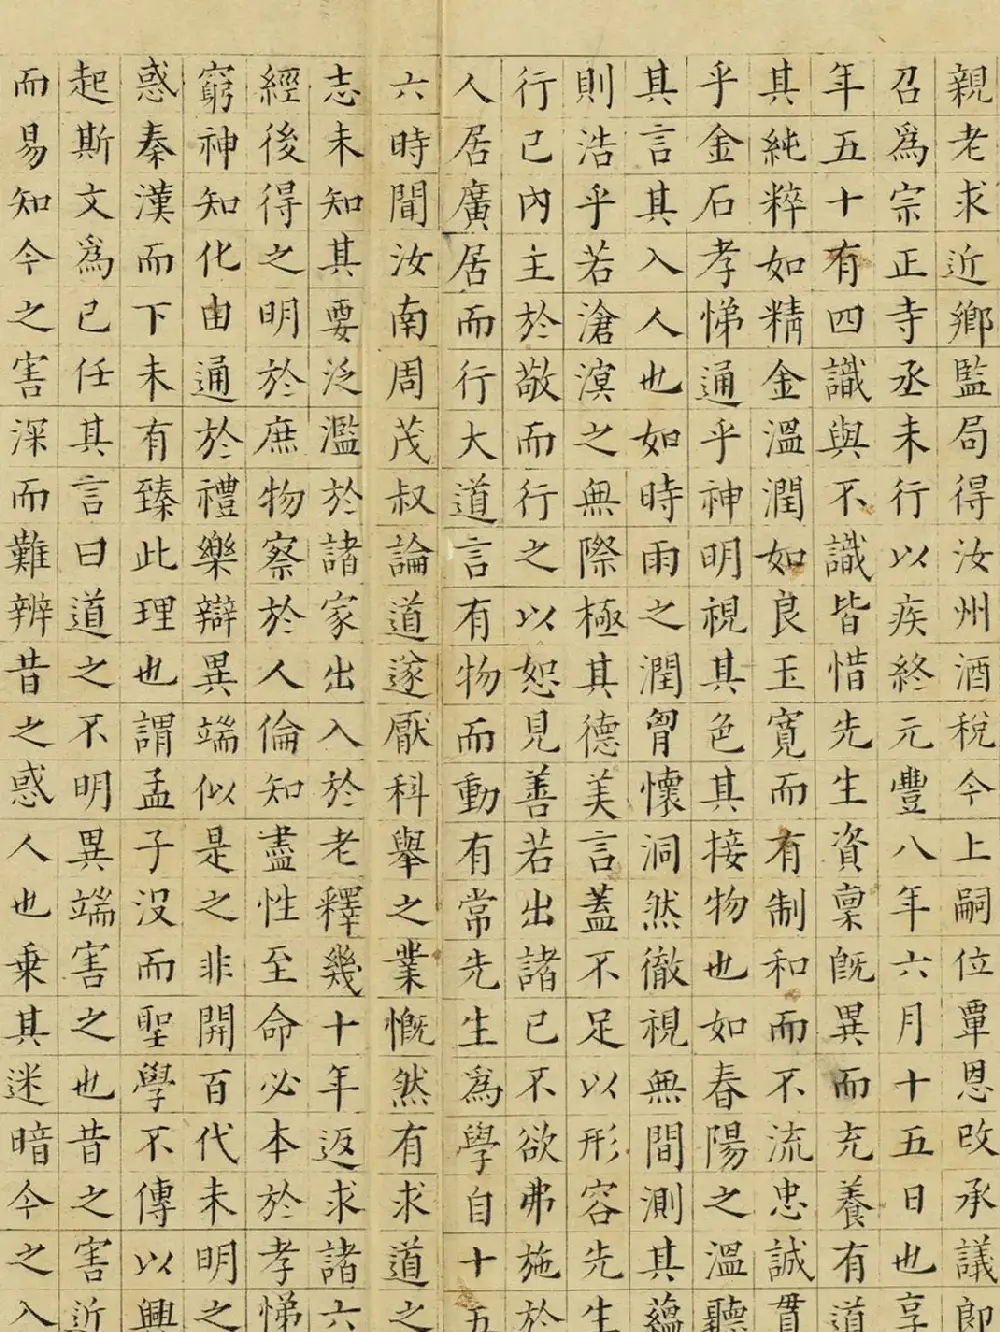 親老求近鄉監局得汝州酒稅今上嗣位覃恩改承議郎
召為宗正寺丞未行以疾終元豐八年六月十五日也享
年五十有四識與不識皆惜先生資稟既異而充養有道
其純粹如精金溫潤如良玉寬而有制和而不流忠誠貫
乎金石孝悌通乎神明視其色其接物也如春陽之溫聽
其言其入人也如時雨之潤胷懷洞然徹視無間測其蘊
則浩乎若滄溟之無際極其德美言蓋不足以形容先生
行己內主於敬而行之以恕見善若出諸己不欲弗施於
人居廣居而行大道言有物而動有常先生為學自十五
六時聞汝南周茂叔論道遂厭科舉之業慨然有求道之
志未知其要泛濫於諸家出入於老釋幾十年返求諸六
經後得之明於庶物察於人倫知盡性至命必本於孝悌
窮神知化由通於禮樂辯異端似是之非開百代未明之
惑秦漢而下未有臻此理也謂孟子沒而聖學不傳以興
起斯文為己任其言曰道之不明異端害之也昔之害近
而易知今之害深而難辨昔之惑人也乗其迷暗今之入